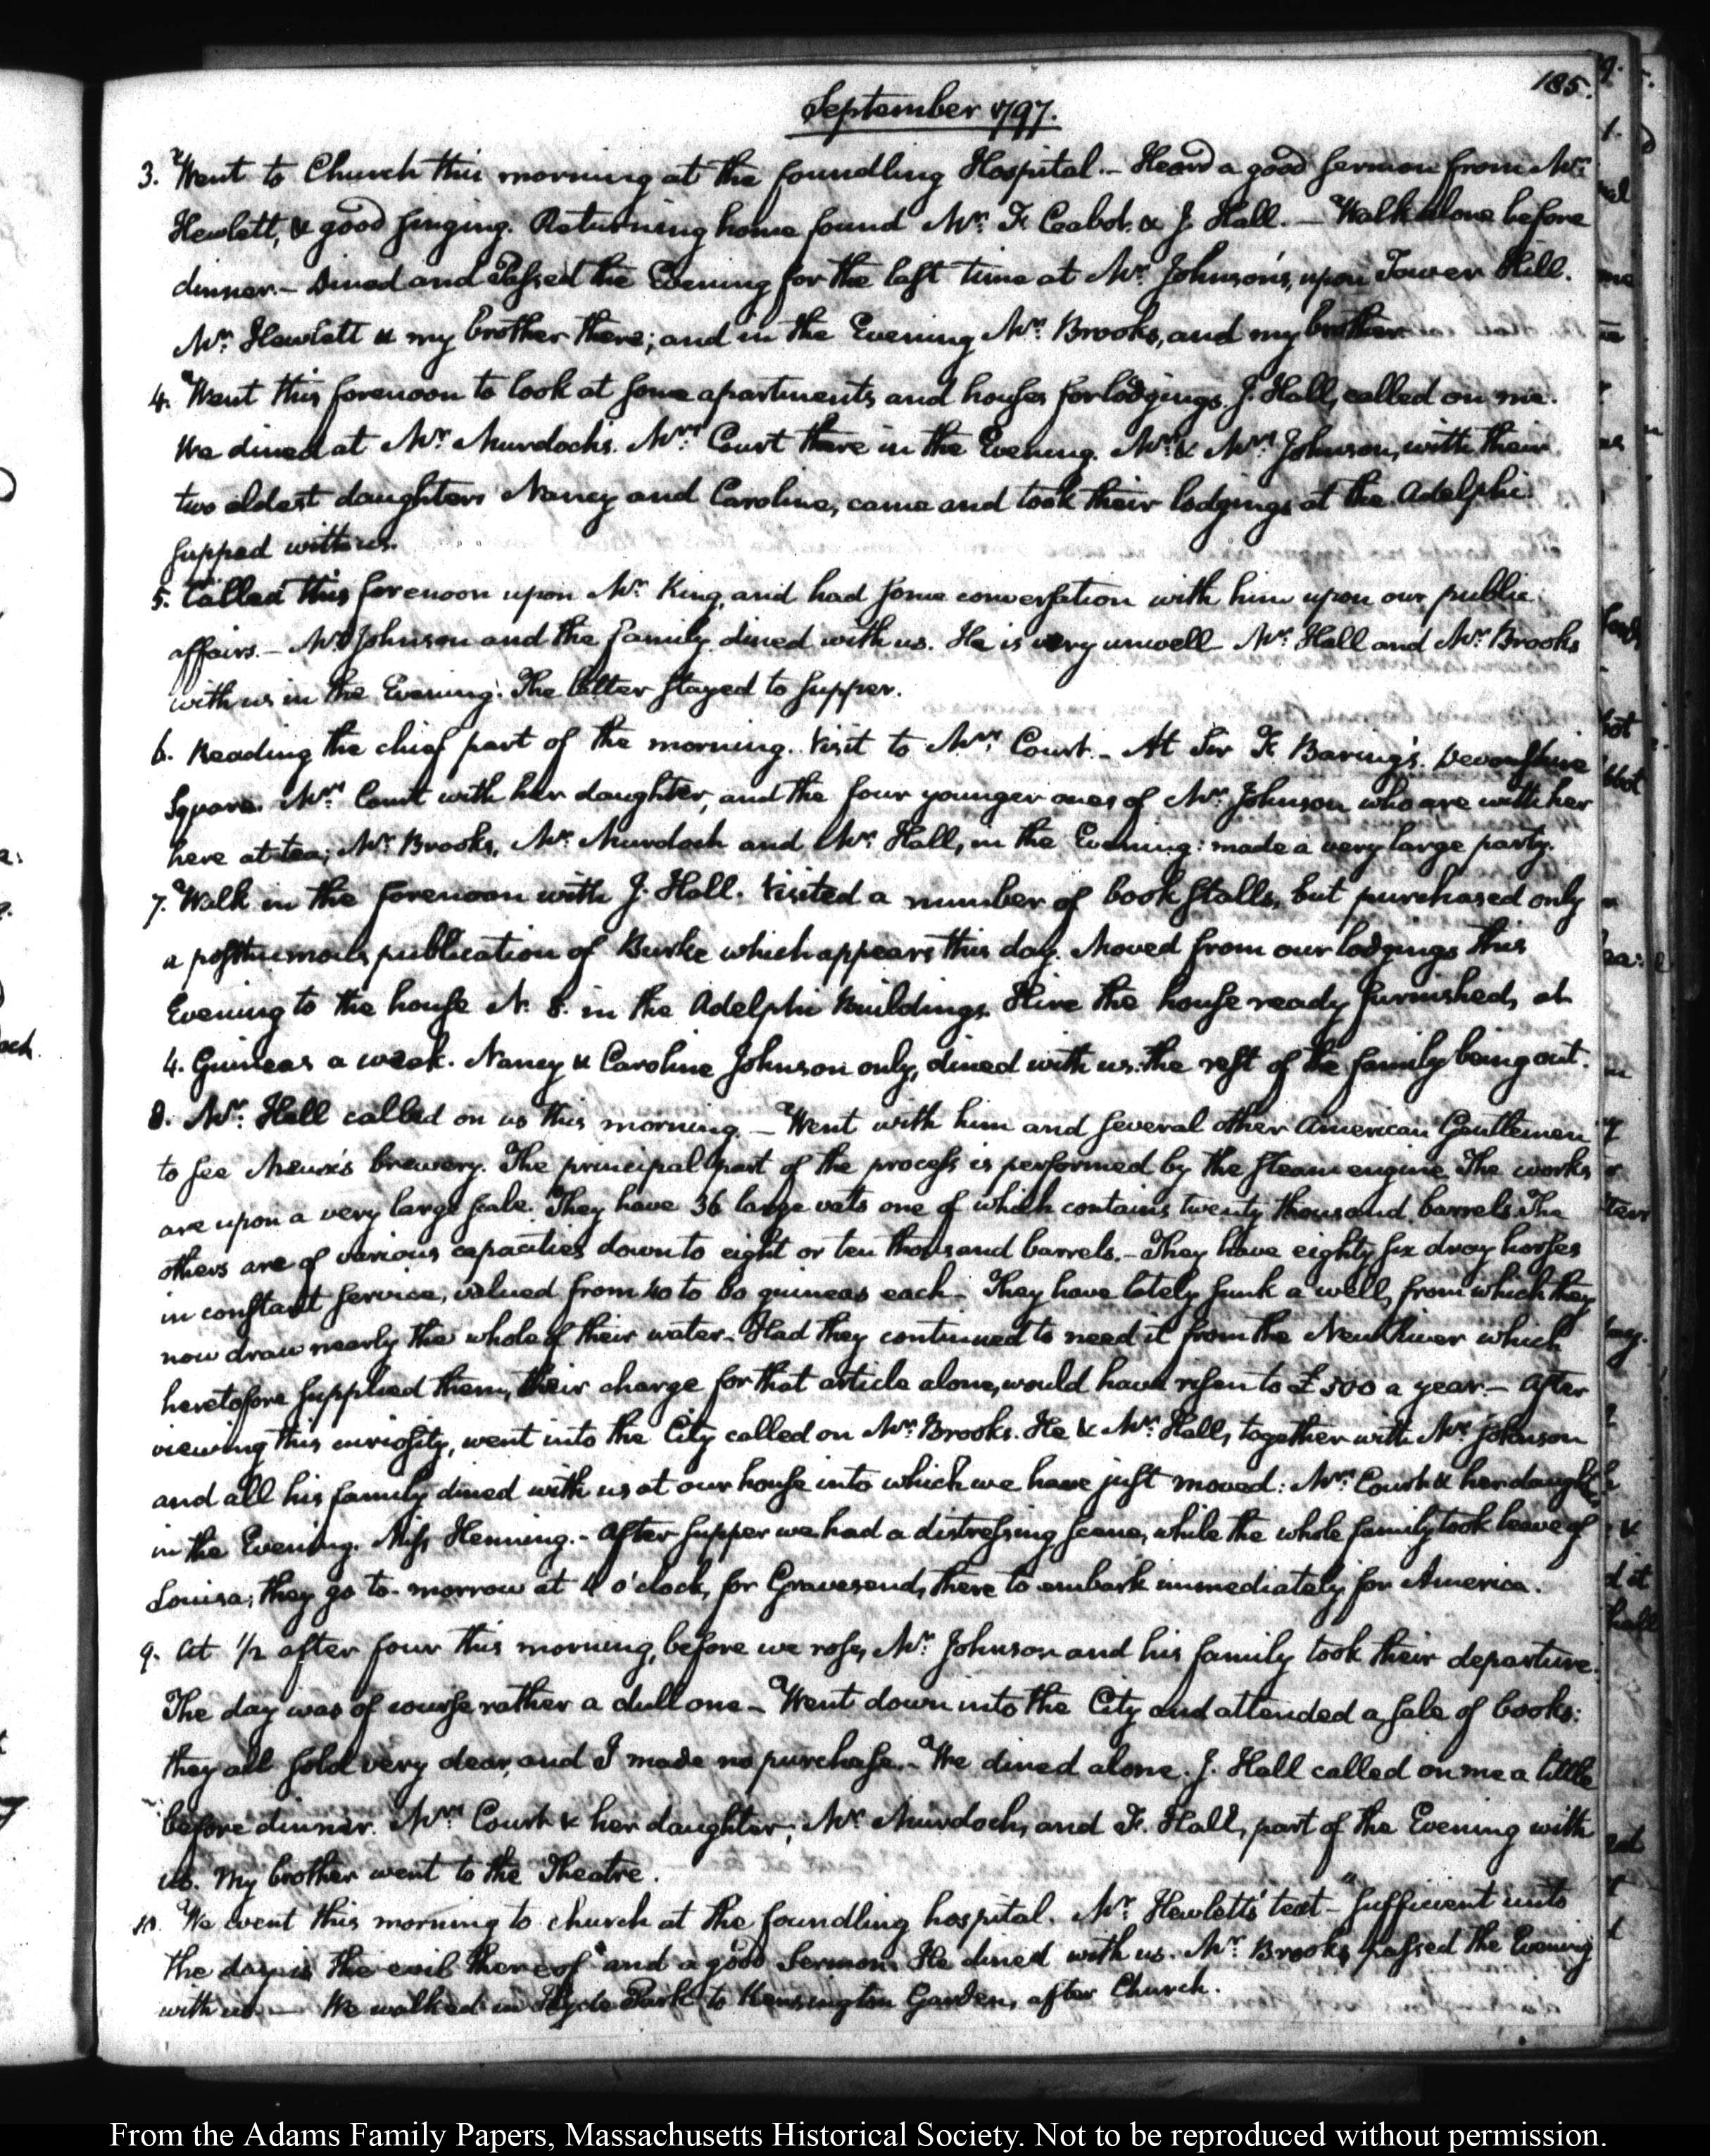 185.
September 1797.
3. Went to Church this morning at the foundling Hospital.- Heard a good sermon from Mr:
Hewlett, & good singing. Returning home found Mr: F. Cabot. & J. Hall. — Walk alone before
dinner.- Dined and passed the Evening for the last time at Mr: Johnson's, upon Tower Hill.
Mr: Hewlett & my brother there; and in the Evening Mr: Brooks, and my brother
4. Went this forenoon to look at some apartments and houses for lodgings. J. Hall, called on me.
We dined at Mr: Murdoch's. Mrs: Court there in the Evening. Mr: & Mrs: Johnson, with their
two eldest daughters Nancy and Caroline, came and took their lodgings at the Adelphi.
supped with us.
5. Called this forenoon upon Mr: King, and had some conversation with him upon our public
affairs.- Mr: Johnson and the family dined with us. He is very unwell Mr: Hall and Mr: Brooks
with us in the Evening. The latter stayed to supper.
6. Reading the chief part of the morning. Visit to Mrs: Court.- At Sir F. Baring's. Devonshire
Square. Mrs: Court with her daughter, and the four younger ones of Mr: Johnson who are with her
here at tea; Mr: Brooks, Mr: Murdoch and Mr: Hall, in the Evening: made a very large party.
7. Walk in the forenoon with J. Hall. Visited a number of book stalls, but purchased only
a posthumous publication of Burke which appears this day. Moved from our lodgings this
Evening to the house N. 8. in the Adelphi Buildings. Hire the house ready furnished, at
4. Guineas a week. Nancy & Caroline Johnson only, dined with us: the rest of the family being out.
8. Mr: Hall called on us this morning.— Went with him and several other American Gentlemen
to see Meux's brewery. The principal part of the process is performed by the steam engine. The works
are upon a very large scale. They have 36 large vats one of which contains twenty thousand barrels. The
others are of various capacities down to eight or ten thousand barrels.- They have eighty six dray horses
in constant service, valued from 40 to 60 guineas each- They have lately sunk a well, from which they
now draw nearly the whole of their water- Had they continued to need it from the New River which
heretofore supplied them, their charge for that article alone, would have risen to £500 a year.— After
viewing this curiosity, went into the City called on Mr: Brooks. He & Mr: Hall, together with Mr: Johnson
and all his family dined with us at our house into which we have just moved: Mrs: Court & her daughter
in the Evening. Miss Henning.- After supper we had a distressing scene, while the whole family took leave of
Louisa; they go to-morrow at 4 o'clock, for Gravesend, there to embark immediately for America.
9. At 1/2 after four this morning, before we rose, Mr: Johnson and his family took their departure.
The day was of course rather a dull one- Went down into the City and attended a sale of books:
they all sold very dear, and I made no purchase.- We dined alone. J. Hall called on me a little
before dinner. Mrs: Court & her daughter; Mr: Murdoch, and F. Hall, part of the Evening with
us. My brother went to the Theatre.
10. We went this morning to church at the foundling hospital. Mr: Hewlett's text- "Sufficient unto
the day is the evil thereof" and a good Sermon. He dined with us. Mr: Brooks passed the Evening
with us.— We walked in Hyde Park to Kensington Garden, after Church.
From the Adams Family Papers, Massachusetts Historical Society. Not to be reproduced without permission.